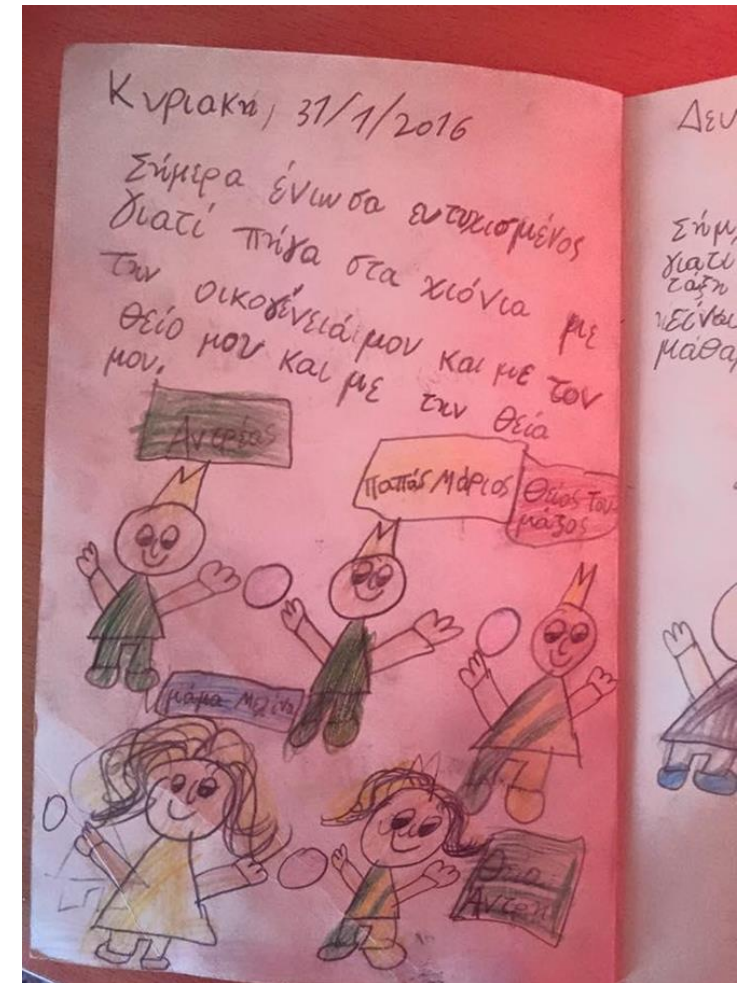 Κυριακη, 31/1/2016
Σήμερα ένιωσα ευτυχισμένος
γιατί πήγα στα χιόνια με
την οικογένειά μου και με τον
θείο μου και με την θεία
μου.
Αντρέας
Παπάς Μάριος
Θείος Του
μάζος
μάμα Μελίνα
Θεια
Αντρη
Δευ
Σήμ
γιατί
τάξη